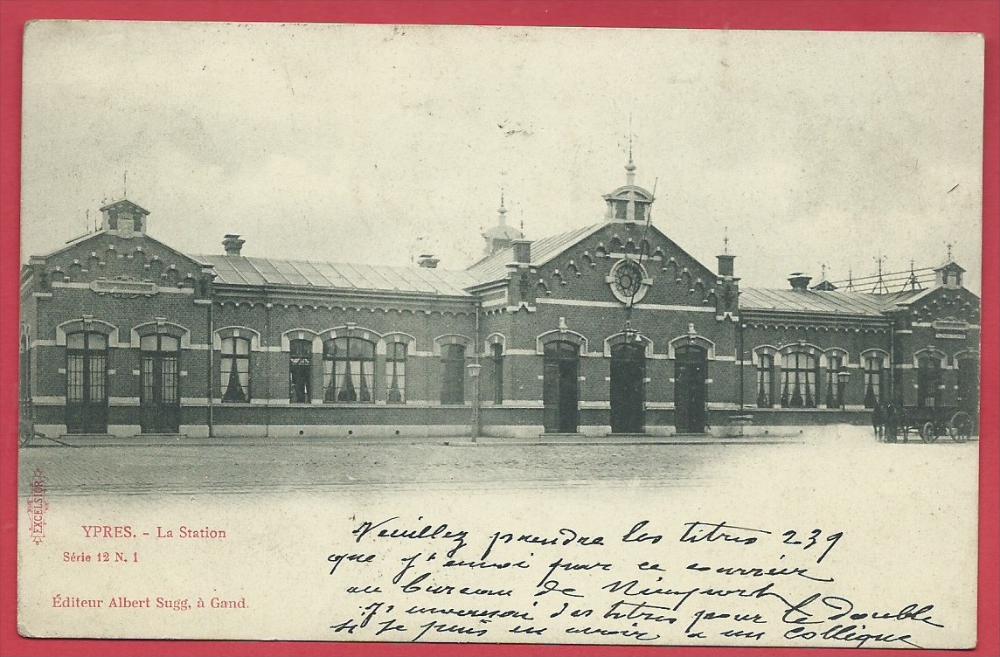 EXCELSIOR
YPRES. - La Station
Série 12 N. 1
Éditeur Albert Sugg, à Gand.
Veuillez prendre les titres 239
que j'envoi par ce courrier
au bureau de Nieuport
J'enverrai des titres pour le double
si je puis en avoir a un Collègue